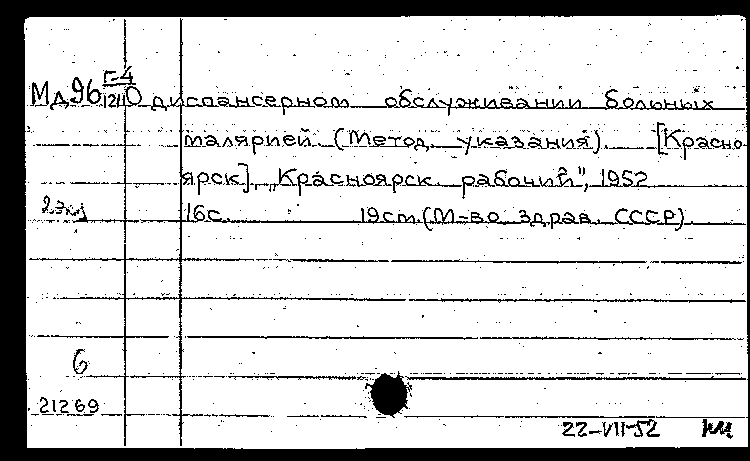 Г-4
Мд96 1210 О диспансерном обслуживании больных
малярией. (Метод. указания). [Красно
ярск]. „Красноярск. рабочий", 1952
2экз 16с. 19см. (М-во здрав. СССР).
6
21269
22-VII-52